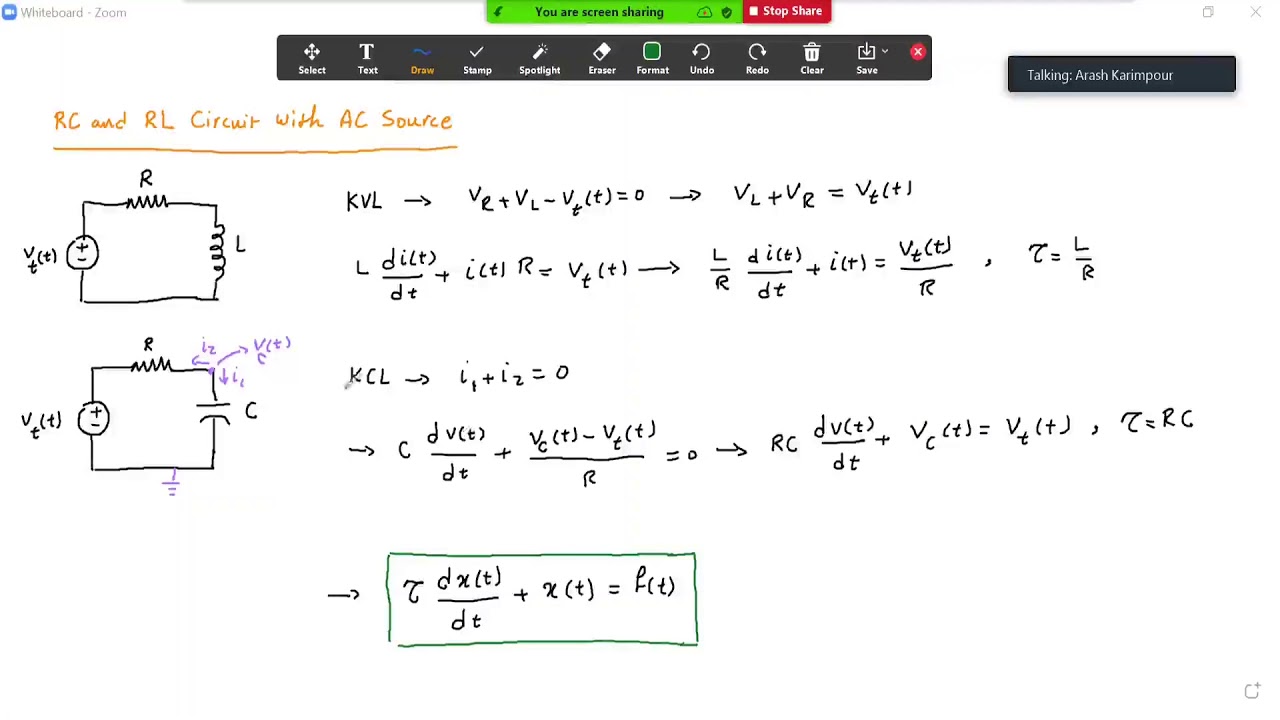 Whiteboard - Zoom
You are screen sharing
Stop Share
Select Text Draw Stamp Spotlight Eraser Format Undo Redo Clear Save
Talking: Arash Karimpour
RC and RL Circuit with AC Source
R
V_t(t)
+
-
L
KVL → V_R + V_L - V_t(t) = 0 → V_L + V_R = V_t(t)
L di(t)/dt + i(t) R = V_t(t) → L/R di(t)/dt + i(t) = V_t(t)/R , τ = L/R
R
i_2
V_c(t)
↓ i_1
V_t(t)
+
-
C
KCL → i_1 + i_2 = 0
→ C dv(t)/dt + (V_c(t) - V_t(t))/R = 0 → RC dv(t)/dt + V_c(t) = V_t(t) , τ = RC
→ τ dx(t)/dt + x(t) = f(t)